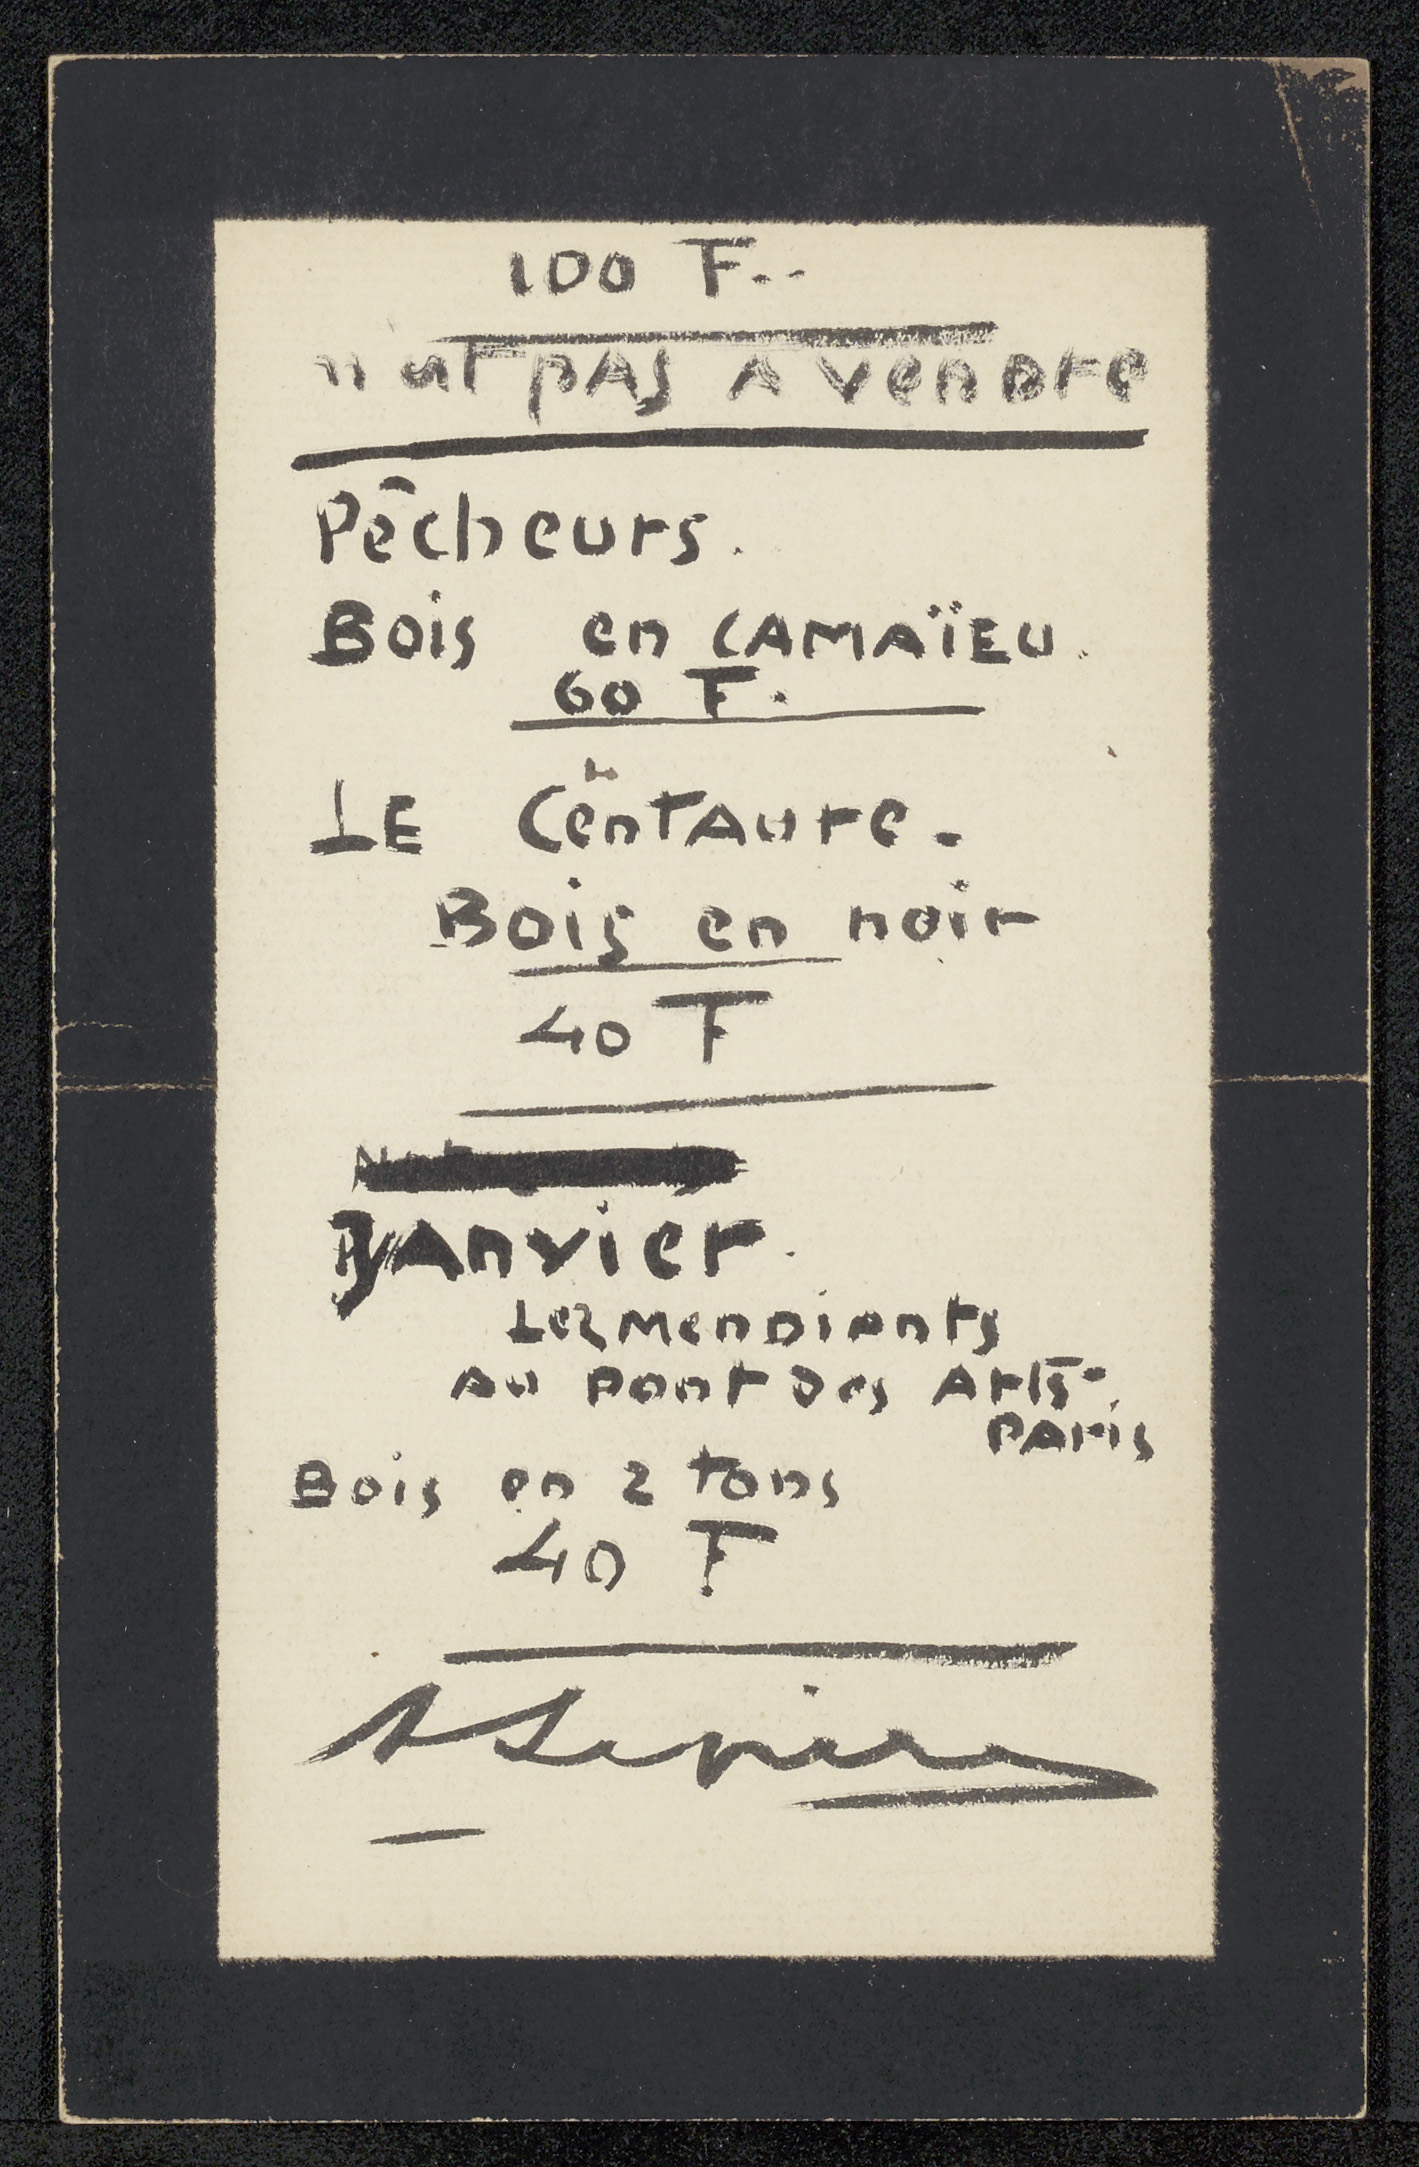 100 F..
n'est pas A vendre
Pêcheurs.
Bois en CAMAïEU.
60 F.
LE Centaure.
Bois en noir
40 F
JAnvier.
Les Mendiants
Au Pont Des Arts.
PAris
Bois en 2 tons
40 F
A Lepère